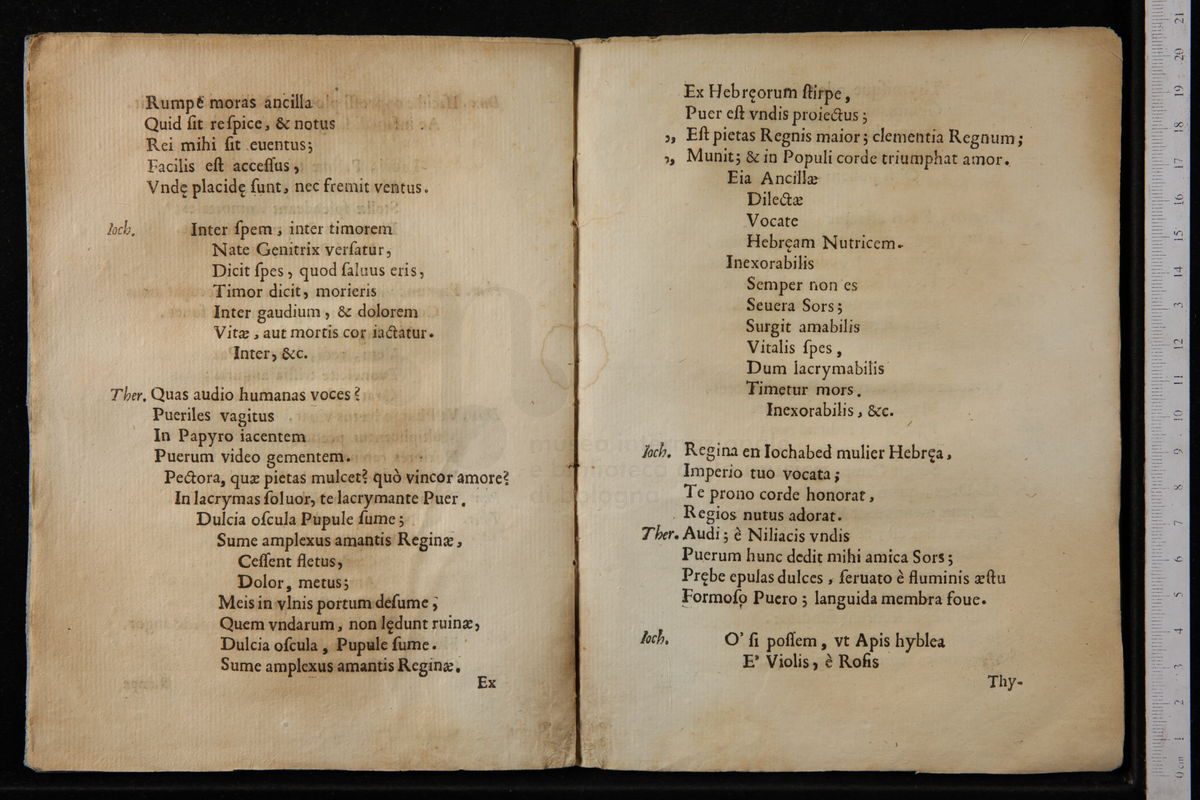 Rumpe moras ancilla
Quid ſit reſpice, & notus
Rei mihi ſit euentus;
Facilis eſt acceſſus,
Vndę placidę ſunt, nec fremit ventus.
Ioch. Inter ſpem, inter timorem
Nate Genitrix verſatur,
Dicit ſpes, quod ſaluus eris,
Timor dicit, morieris
Inter gaudium, & dolorem
Vitæ, aut mortis cor iactatur.
Inter, &c.
Ther. Quas audio humanas voces?
Pueriles vagitus
In Papyro iacentem
Puerum video gementem.
Pectora, quæ pietas mulcet? quò vincor amore?
In lacrymas ſoluor, te lacrymante Puer.
Dulcia oſcula Pupule ſume;
Sume amplexus amantis Reginæ,
Ceſſent fletus,
Dolor, metus;
Meis in vlnis portum deſume;
Quem vndarum, non lędunt ruinæ,
Dulcia oſcula, Pupule ſume.
Sume amplexus amantis Reginæ.
Ex
Ex Hebręorum ſtirpe,
Puer eſt vndis proiectus;
„ Eſt pietas Regnis maior; clementia Regnum;
„ Munit; & in Populi corde triumphat amor.
Eia Ancillæ
Dilectæ
Vocate
Hebręam Nutricem.
Inexorabilis
Semper non es
Seuera Sors;
Surgit amabilis
Vitalis ſpes,
Dum lacrymabilis
Timetur mors.
Inexorabilis, &c.
Ioch. Regina en Iochabed mulier Hebręa,
Imperio tuo vocata;
Te prono corde honorat,
Regios nutus adorat.
Ther. Audi; è Niliacis vndis
Puerum hunc dedit mihi amica Sors;
Prębe epulas dulces, ſeruato è fluminis æſtu
Formoſo Puero; languida membra foue.
Ioch. O' ſi poſſem, vt Apis hyblea
E' Violis, è Roſis
Thy-